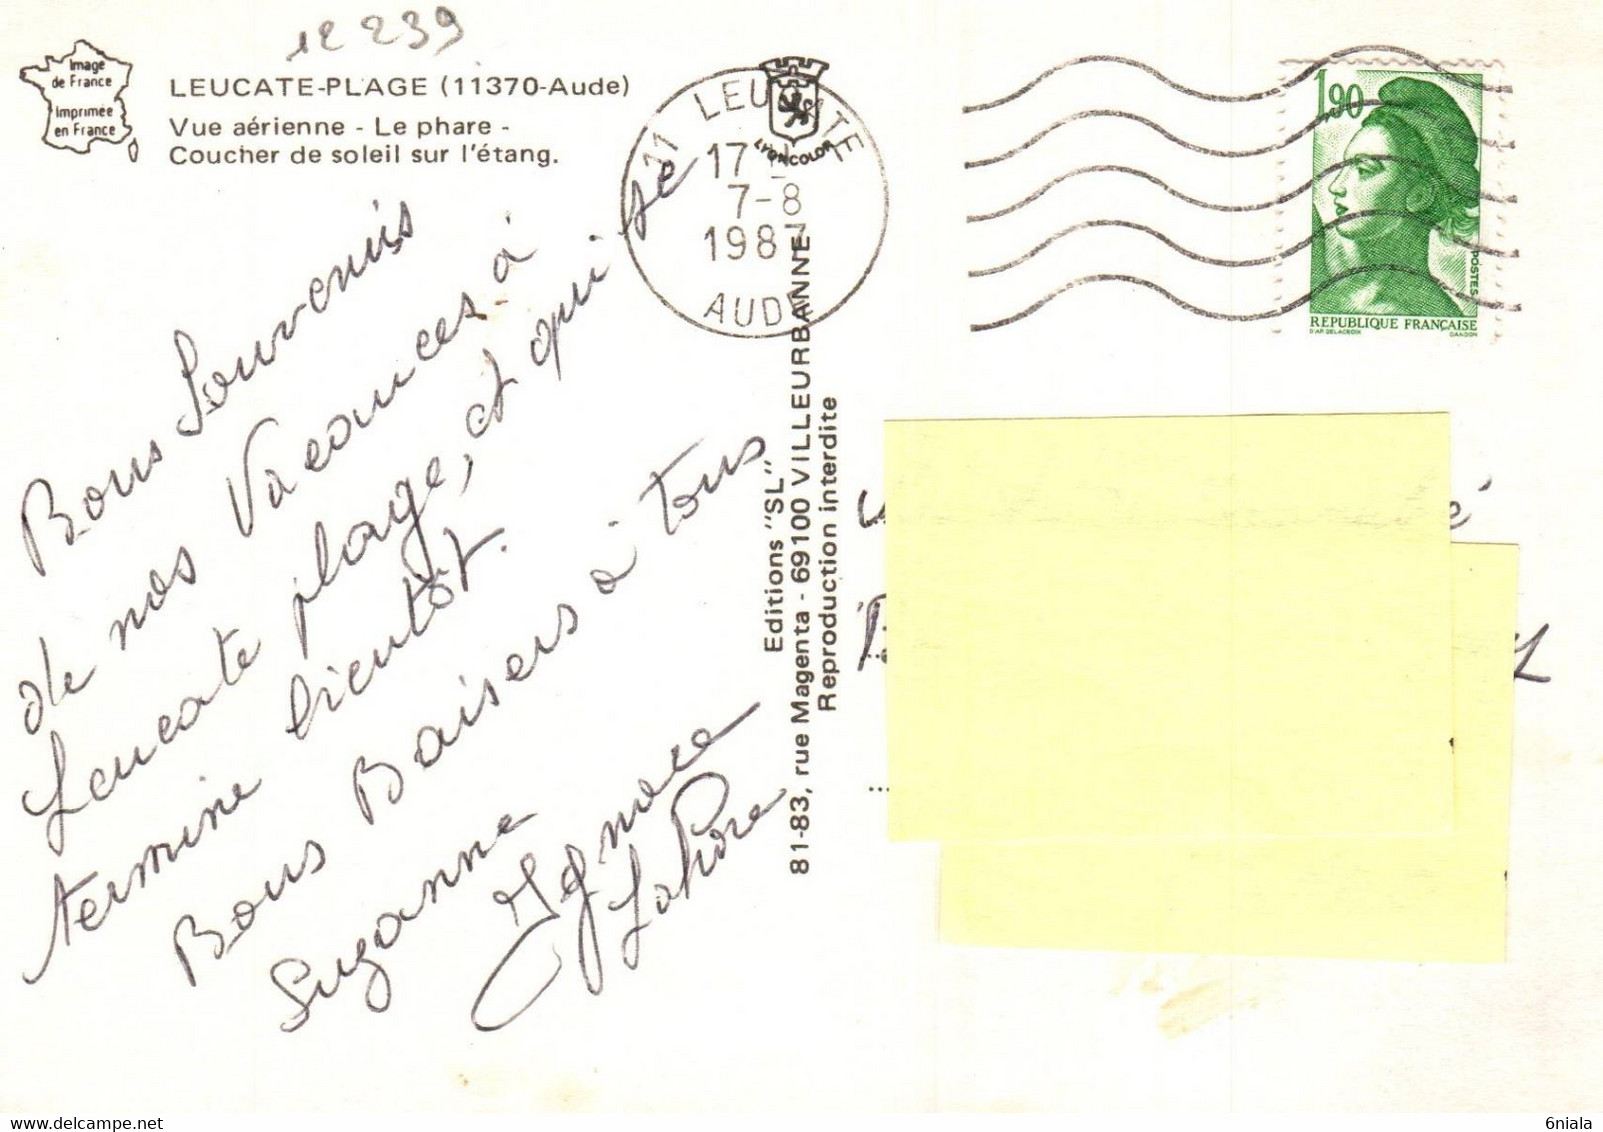 12 239
Image
de France
Imprimée
en France
LEUCATE-PLAGE (11370-Aude)
Vue aérienne - Le phare -
Coucher de soleil sur l'étang.
Bons Souvenirs
de nos Vacances à
Leucate plage, et qui se
termine bientôt.
Bons Baisers à tous
Suzanne Ignace
11 LEUCATE
17
7-8
1987
AUDE
LYONCOLOR
Editions "SL"
81-83, rue Magenta - 69100 VILLEURBANNE
Reproduction interdite
1,90
POSTES
REPUBLIQUE FRANÇAISE
D'AP. DELACROIX GANDON
delcampe.net
6niala